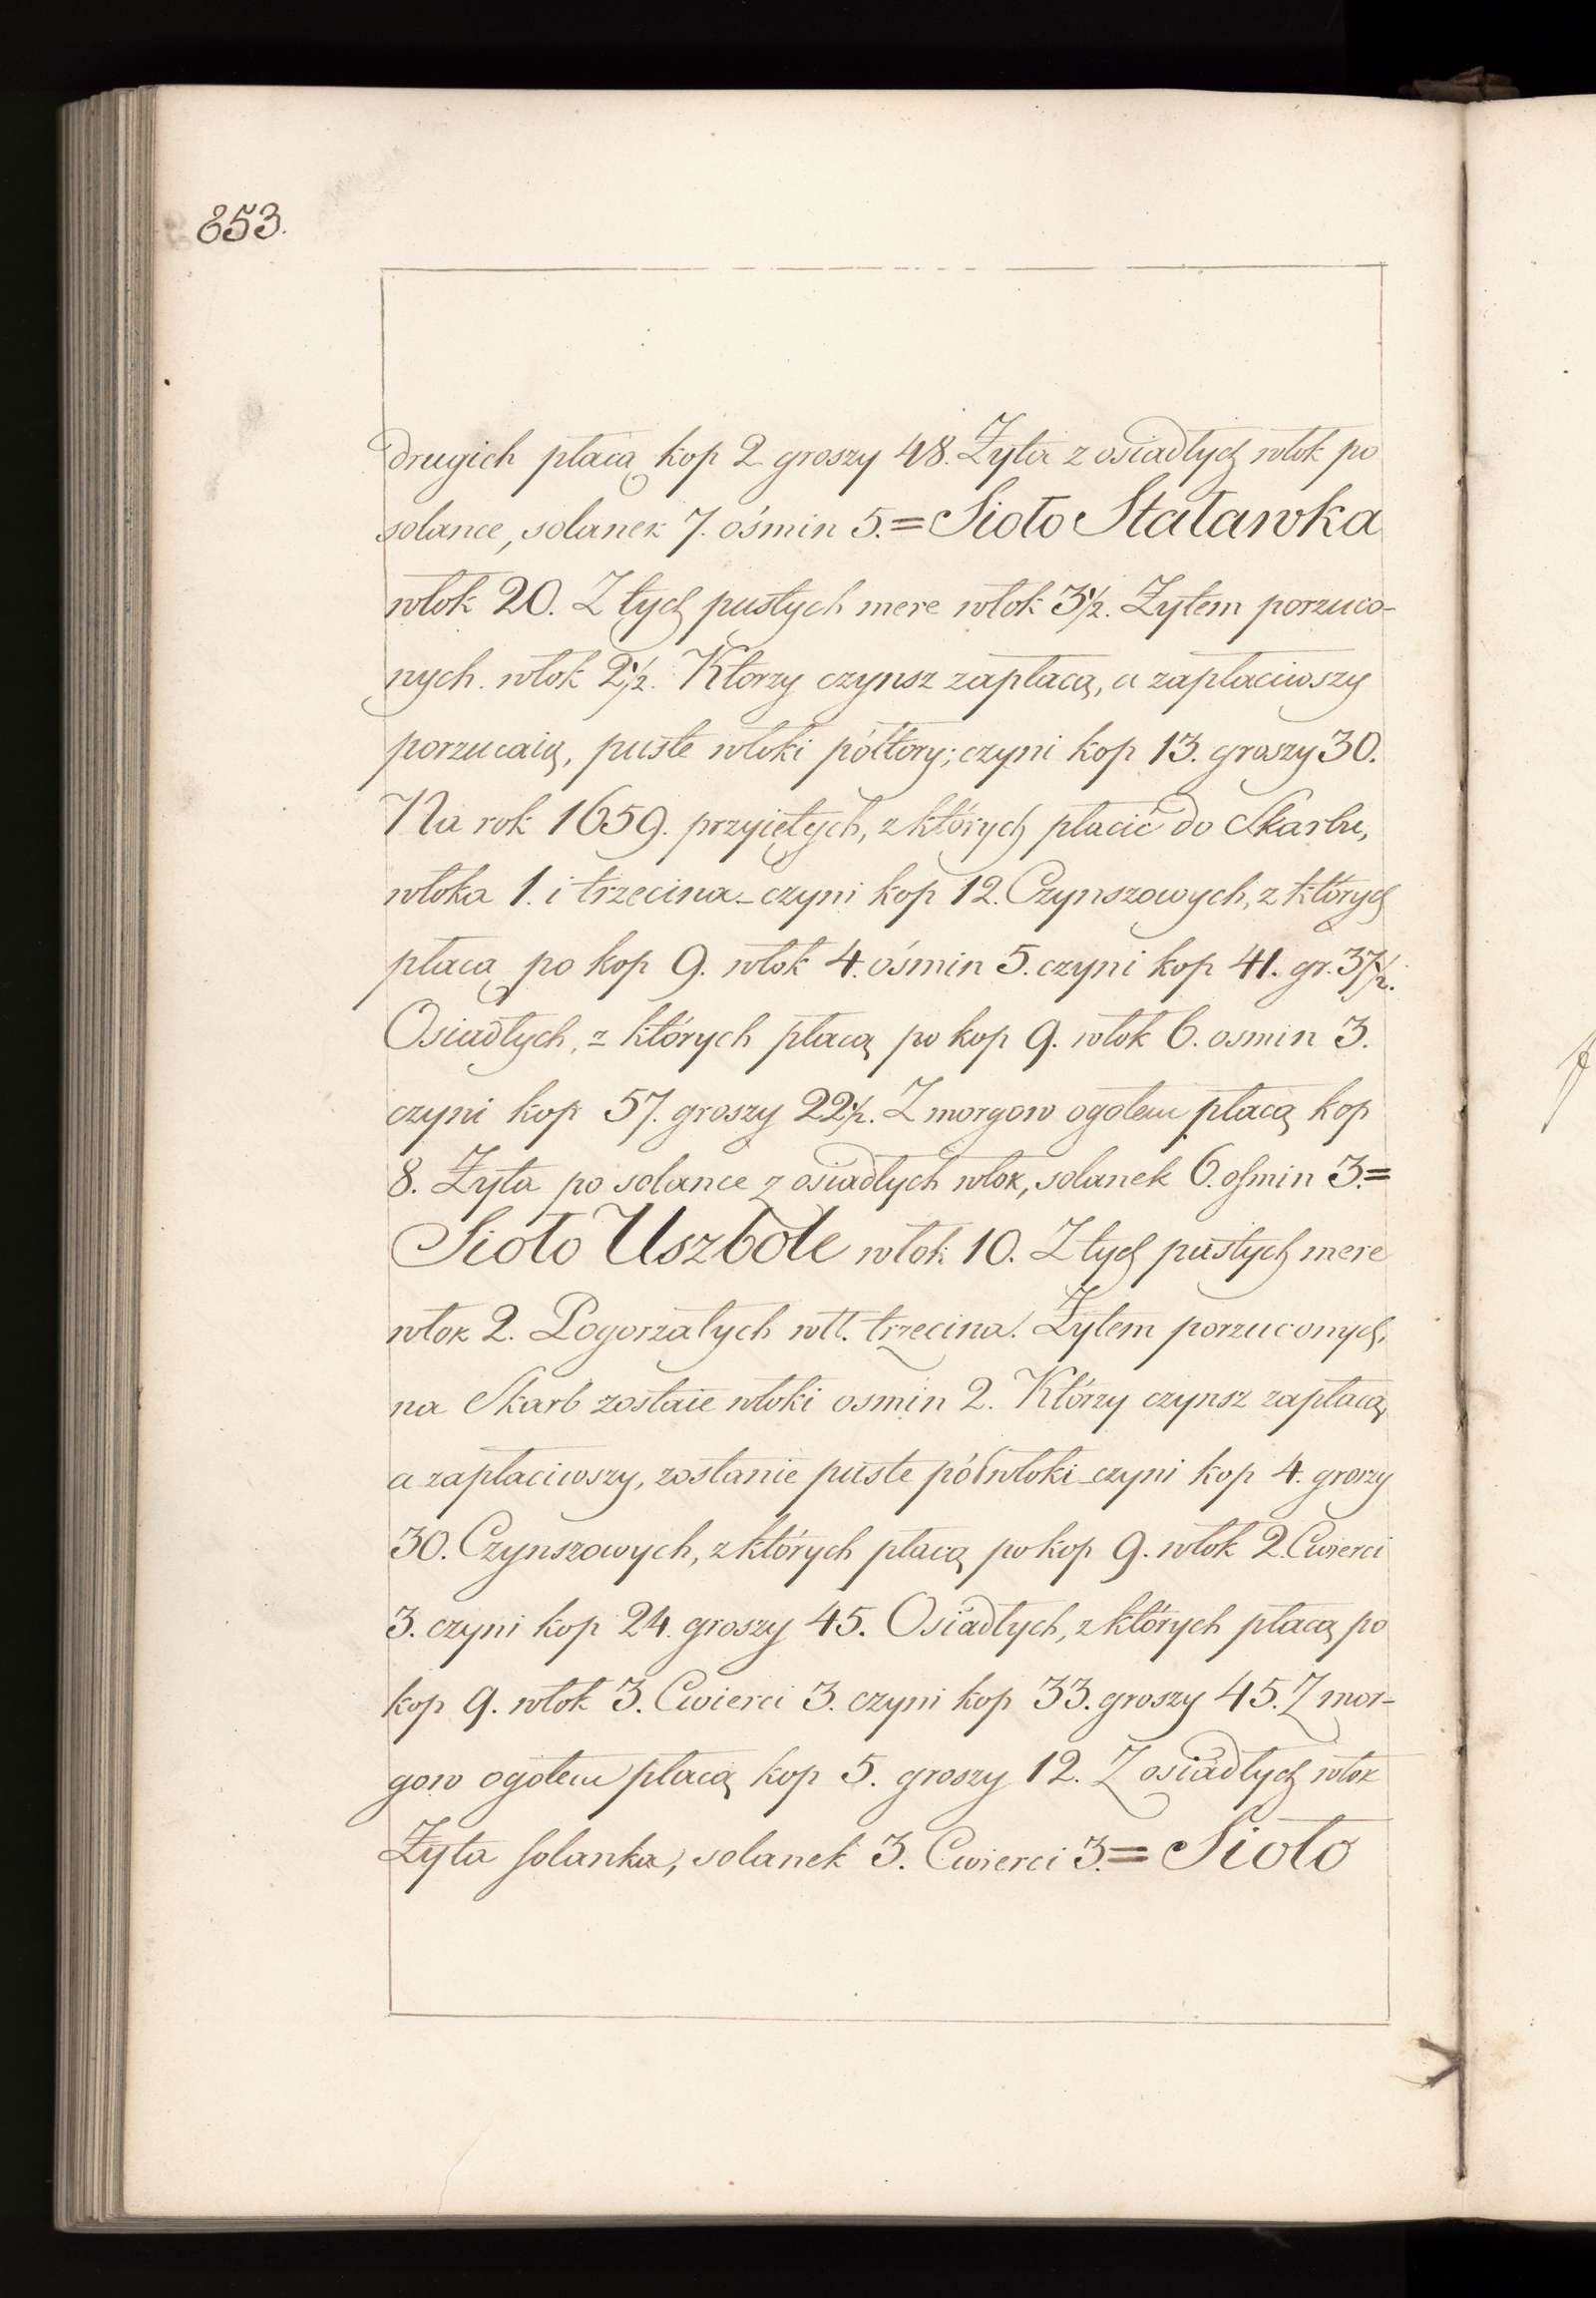 853.
drugich płacą kop 2 groszy 48. Żyta z osiadłych włok po
solance, solanek 7. ośmin 5.= Sioło Staławka
włok 20. Z tych pustych mere włok 3½. Żytem porzuco-
nych. włok 2½. Ktorzy czynsz zapłacą, a zapłaciwszy
porzucaią, puste włoki półtory; czyni kop 13. groszy 30.
Na rok 1659. przyiętych, z których płacić do Skarbu,
włoka 1. i trzecina - czyni kop 12. Czynszowych, z których
płacą po kop 9. włok 4. ośmin 5. czyni kop 41. gr. 37½.
Osiadłych, z których płacą po kop 9. włok 6. osmin 3.
czyni kop 57. groszy 22½. Z morgow ogołem płacą kop
8. Żyta po solance z osiadłych włok, solanek 6. osmin 3.=
Sioło Uszbole włok 10. Z tych pustych mere
włok 2. Pogorzałych włł. trzecina. Żytem porzuconych,
na Skarb zostaie włoki osmin 2. Którzy czynsz zapłacą,
a zapłaciwszy, zostanie puste półwłoki - czyni kop 4. groszy
30. Czynszowych, z których płacą po kop 9. włok 2. Cwierci
3. czyni kop 24. groszy 45. Osiadłych, z których płacą po
kop 9. włok 3. Cwierci 3. czyni kop 33. groszy 45. Z mor-
gow ogołem płacą kop 5. groszy 12. Z osiadłych włok
Żyta solanka, solanek 3. Cwierci 3.= Sioło